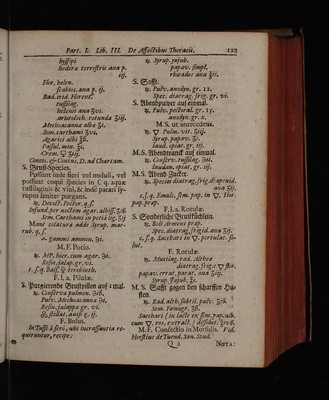 Part. I. Lib. III. De Affectibus Thoracis. 123
hyssopi
hedera terrestris ana p.
ij.
Flor. helen.
scabios. ana p. ij.
Rad. irid. Florent.
tussilag.
helenii ana ʒvi.
aristoloch. rotunda ʒiij.
Mechoacanna alba ʒi.
Sem. carthami ʒvi.
Agarici albi
Passul. min. ʒi.
Crem.
Concis. & Contus. D. ad Chartam.
S. Brust-Species.
Possunt inde fieri vel noduli, vel
possunt coqui species in s. q. aquæ
tussilaginis & vini, & inde parari sy-
rupus imiter purgans.
Decoct. Pector. q. s.
Infund. per noctem agar. albiss.
Sem. Carthami in petia lig.
Mane colatura adde Syrup. mar-
rub. q. s.
gummi ammon.
M. F. Potio.
hier. cum agar.
Resin. jalap. gr. vi.
c. s. q. Bals. terebinth.
F. l. a. Pilulæ.
S. Purgierende Brustpillen auf 1. mal.
Conserva pulmon.
Pulv. Mechoacanna
Resin. jalappa gr. vi.
stillat. anisi g. ij.
F. Bolus.
In Tussi à serò, ubi incrassantia re-
quiruntur, recipe:
Syrup. jujub.
papav. simpl.
rhœados ana ʒii.
S. Safft.
Pulv. anodyn. gr. 12.
Spec. diatrag. frig. gr. vi.
S. Abendpulver auf einmal.
Pulv. pectoral. gr. 15.
anodyn. gr. x.
M. S. ut antecedens.
Pulm. vit.
Syrup. papav.
laud. opiat. gr. iij.
M. S. Abendtranck auf einmal.
Conserv. tussilag.
laudan. opiat. gr. iij.
M. S. Abend Zucker.
Species diatrag. frig. diapenid.
ana
c. s. q. Emuls. sem. pap. in Flor.
pap. prap.
F. l. a. Rotulæ.
S. Sonderliche Brustküchlein.
Boli Armeni prap.
Spec. diatrag. frigid. ana
c. s. q. Sacchari in portulac. so-
lut.
F. Rotulæ.
Mucilag. rad. Althea
diatrag. frig.
papav. errat. parat. ana
Syrup. jujub.
M. S. Safft gegen den scharffen Hu-
sten.
Rad. alth. subtil. pulv.
Sem. Fœnugr.
Sacchari (in lacte ex sem. pap. alb.
cum ros. extract.) dissolut.
M. F. Confectio in Morsulis. Vid.
Horstius de Tuend. San. Stud.
Q 2 NOTA: